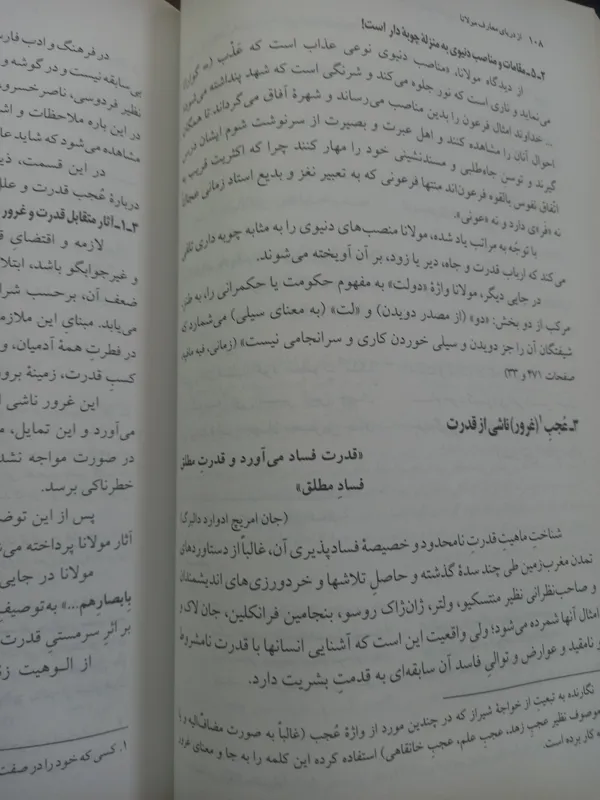 ۱۰۸ از دریای معارف مولانا
۲ـ۵ـ مقامات و مناصب دنیوی به منزلهٔ چوبهٔ دار است!
از دیدگاه مولانا، «مناصب دنیوی نوعی عذاب است که عَذْب (= گوارا)
می‌نماید و ناری است که نور جلوه می‌کند و شرنگی است که شهد پنداشته می‌شود
... خداوند امثال فرعون را بدین مناصب می‌رساند و شهرهٔ آفاق می‌گرداند تا همگان
احوال آنان را مشاهده کنند و اهل عبرت و بصیرت از سرنوشت شوم ایشان درس
گیرند و توسن جاه‌طلبی و مسندنشینی خود را مهار کنند چرا که اکثریت قریب به
اتفاق نفوس بالقوه فرعون‌اند منتها فرعونی که به تعبیر نغز و بدیع استاد زمانی
نه «فر»ی دارد و نه «عونی».
با توجّه به مراتب یاد شده، مولانا منصب‌های دنیوی را به مثابه چوبه داری تلقی
می‌کند که ارباب قدرت و جاه، دیر یا زود، بر آن آویخته می‌شوند.
در جایی دیگر، مولانا واژهٔ «دولت» به مفهوم حکومت یا حکمرانی را، به طنز
مرکب از دو بخش: «دو» (از مصدر دویدن) و «لت» (به معنای سیلی) می‌شمارد و
شیفتگان آن را جز دویدن و سیلی خوردن کاری و سرانجامی نیست» (زمانی،
صفحات ۴۷۱ و ۳۳)
۳ـ عُجبِ۱ (غرور) ناشی از قدرت
«قدرت فساد می‌آورد و قدرتِ مطلق
فسادِ مطلق»
(جان امریچ ادوارد
شناختِ ماهیتِ قدرتِ نامحدود و خصیصهٔ فسادپذیری آن، غالباً از دستاوردهای
تمدن مغرب‌زمین طی چند سدهٔ گذشته و حاصلِ تلاشها و خردورزی‌های اندیشمندان
و صاحب‌نظرانی نظیر منتسکیو، ولتر، ژان‌ژاک روسو، بنجامین فرانکلین، جان لاک و
امثال آنها شمرده می‌شود؛ ولی واقعیت این است که آشنایی انسانها با قدرت نامشروط
و نامفید و عوارض و توالیِ فاسد آن سابقه‌ای به قدمتِ بشریت دارد.
نگارنده به تبعیتِ از خواجهٔ شیراز که در چندین مورد از واژهٔ عُجب (غالباً به صورت مضاف‌الیه و یا
موصوف نظیر عجبِ زهد، عجبِ علم، عجبِ خانقاهی) استفاده کرده این کلمه را به جا و معنای غرور،
کار برده است.
در فرهنگ و ادب
بی‌سابقه نیست و در گوشه و
نظیر فردوسی، ناصرخسرو،
در این باره ملاحظات و
مشاهده می‌شود که شاید
در این قسمت،
دربارهٔ عُجب قدرت و
۳ـ۱ـ آثار متقابل قدرت و غرور
لازمه و اقتضای
و غیرجوابگو باشد،
ضعف آن، برحسب
می‌یابد. مبنای این
در فطرتِ همهٔ آدمیان، و
کسبِ قدرت، زمینهٔ
این غرور ناشی
می‌آورد و این تمایل،
در صورت مواجه
خطرناکی برسد.
پس از این
آثار مولانا پرداخته
مولانا در جایی
بِابصارِهم...» به‌توصیف
بر اثرِ سرمستیِ قدرت
از الوهیت
۱. کسی که خود را در